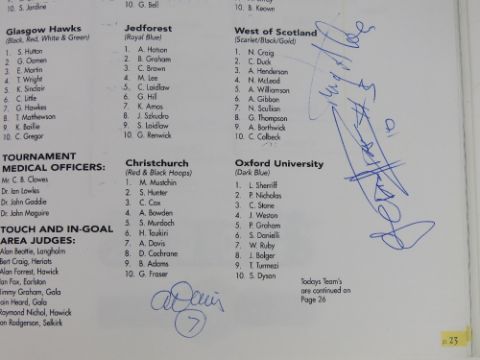 10. S. Jardine
10. G. Bell
10. B. Keown
Glasgow Hawks
(Black, Red, White & Green)
1. S. Hutton
2. G. Oomen
3. E. Martin
4. T. Wright
5. K. Sinclair
6. C. Little
7. G. Hawkes
8. T. Matthewson
9. K. Baillie
10. C. Gregor
Jedforest
(Royal Blue)
1. A. Hotson
2. B. Graham
3. C. Brown
4. M. Lee
5. C. Laidlaw
6. G. Hill
7. K. Amos
8. J. Szkudro
9. S. Laidlaw
10. G. Renwick
West of Scotland
(Scarlet/Black/Gold)
1. N. Craig
2. C. Duck
3. A. Henderson
4. N. McLeod
5. A. Williamson
6. A. Gibbon
7. N. Scullian
8. G. Thompson
9. A. Borthwick
10. C. Colbeck
TOURNAMENT
MEDICAL OFFICERS:
Mr. C. B. Clowes
Dr. Ian Lowles
Dr. John Gaddie
Dr. John Maguire
TOUCH AND IN-GOAL
AREA JUDGES:
Alan Beattie, Langholm
Bert Craig, Heriots
Alan Forrest, Hawick
Ian Fox, Earlston
Jimmy Graham, Gala
Iain Heard, Gala
Raymond Nichol, Hawick
Ian Rodgerson, Selkirk
Christchurch
(Red & Black Hoops)
1. M. Mustchin
2. S. Hunter
3. C. Cox
4. A. Bowden
5. S. Murdoch
6. H. Taukiri
7. A. Davis
8. D. Cochrane
9. B. Adams
10. G. Fraser
Oxford University
(Dark Blue)
1. L. Sherriff
2. P. Nicholas
3. C. Stone
4. J. Weston
5. P. Graham
6. S. Danielli
7. W. Ruby
8. J. Bolger
9. T. Turmezi
10. S. Dyson
Todays Team's
are continued on
Page 26
7
p. 23